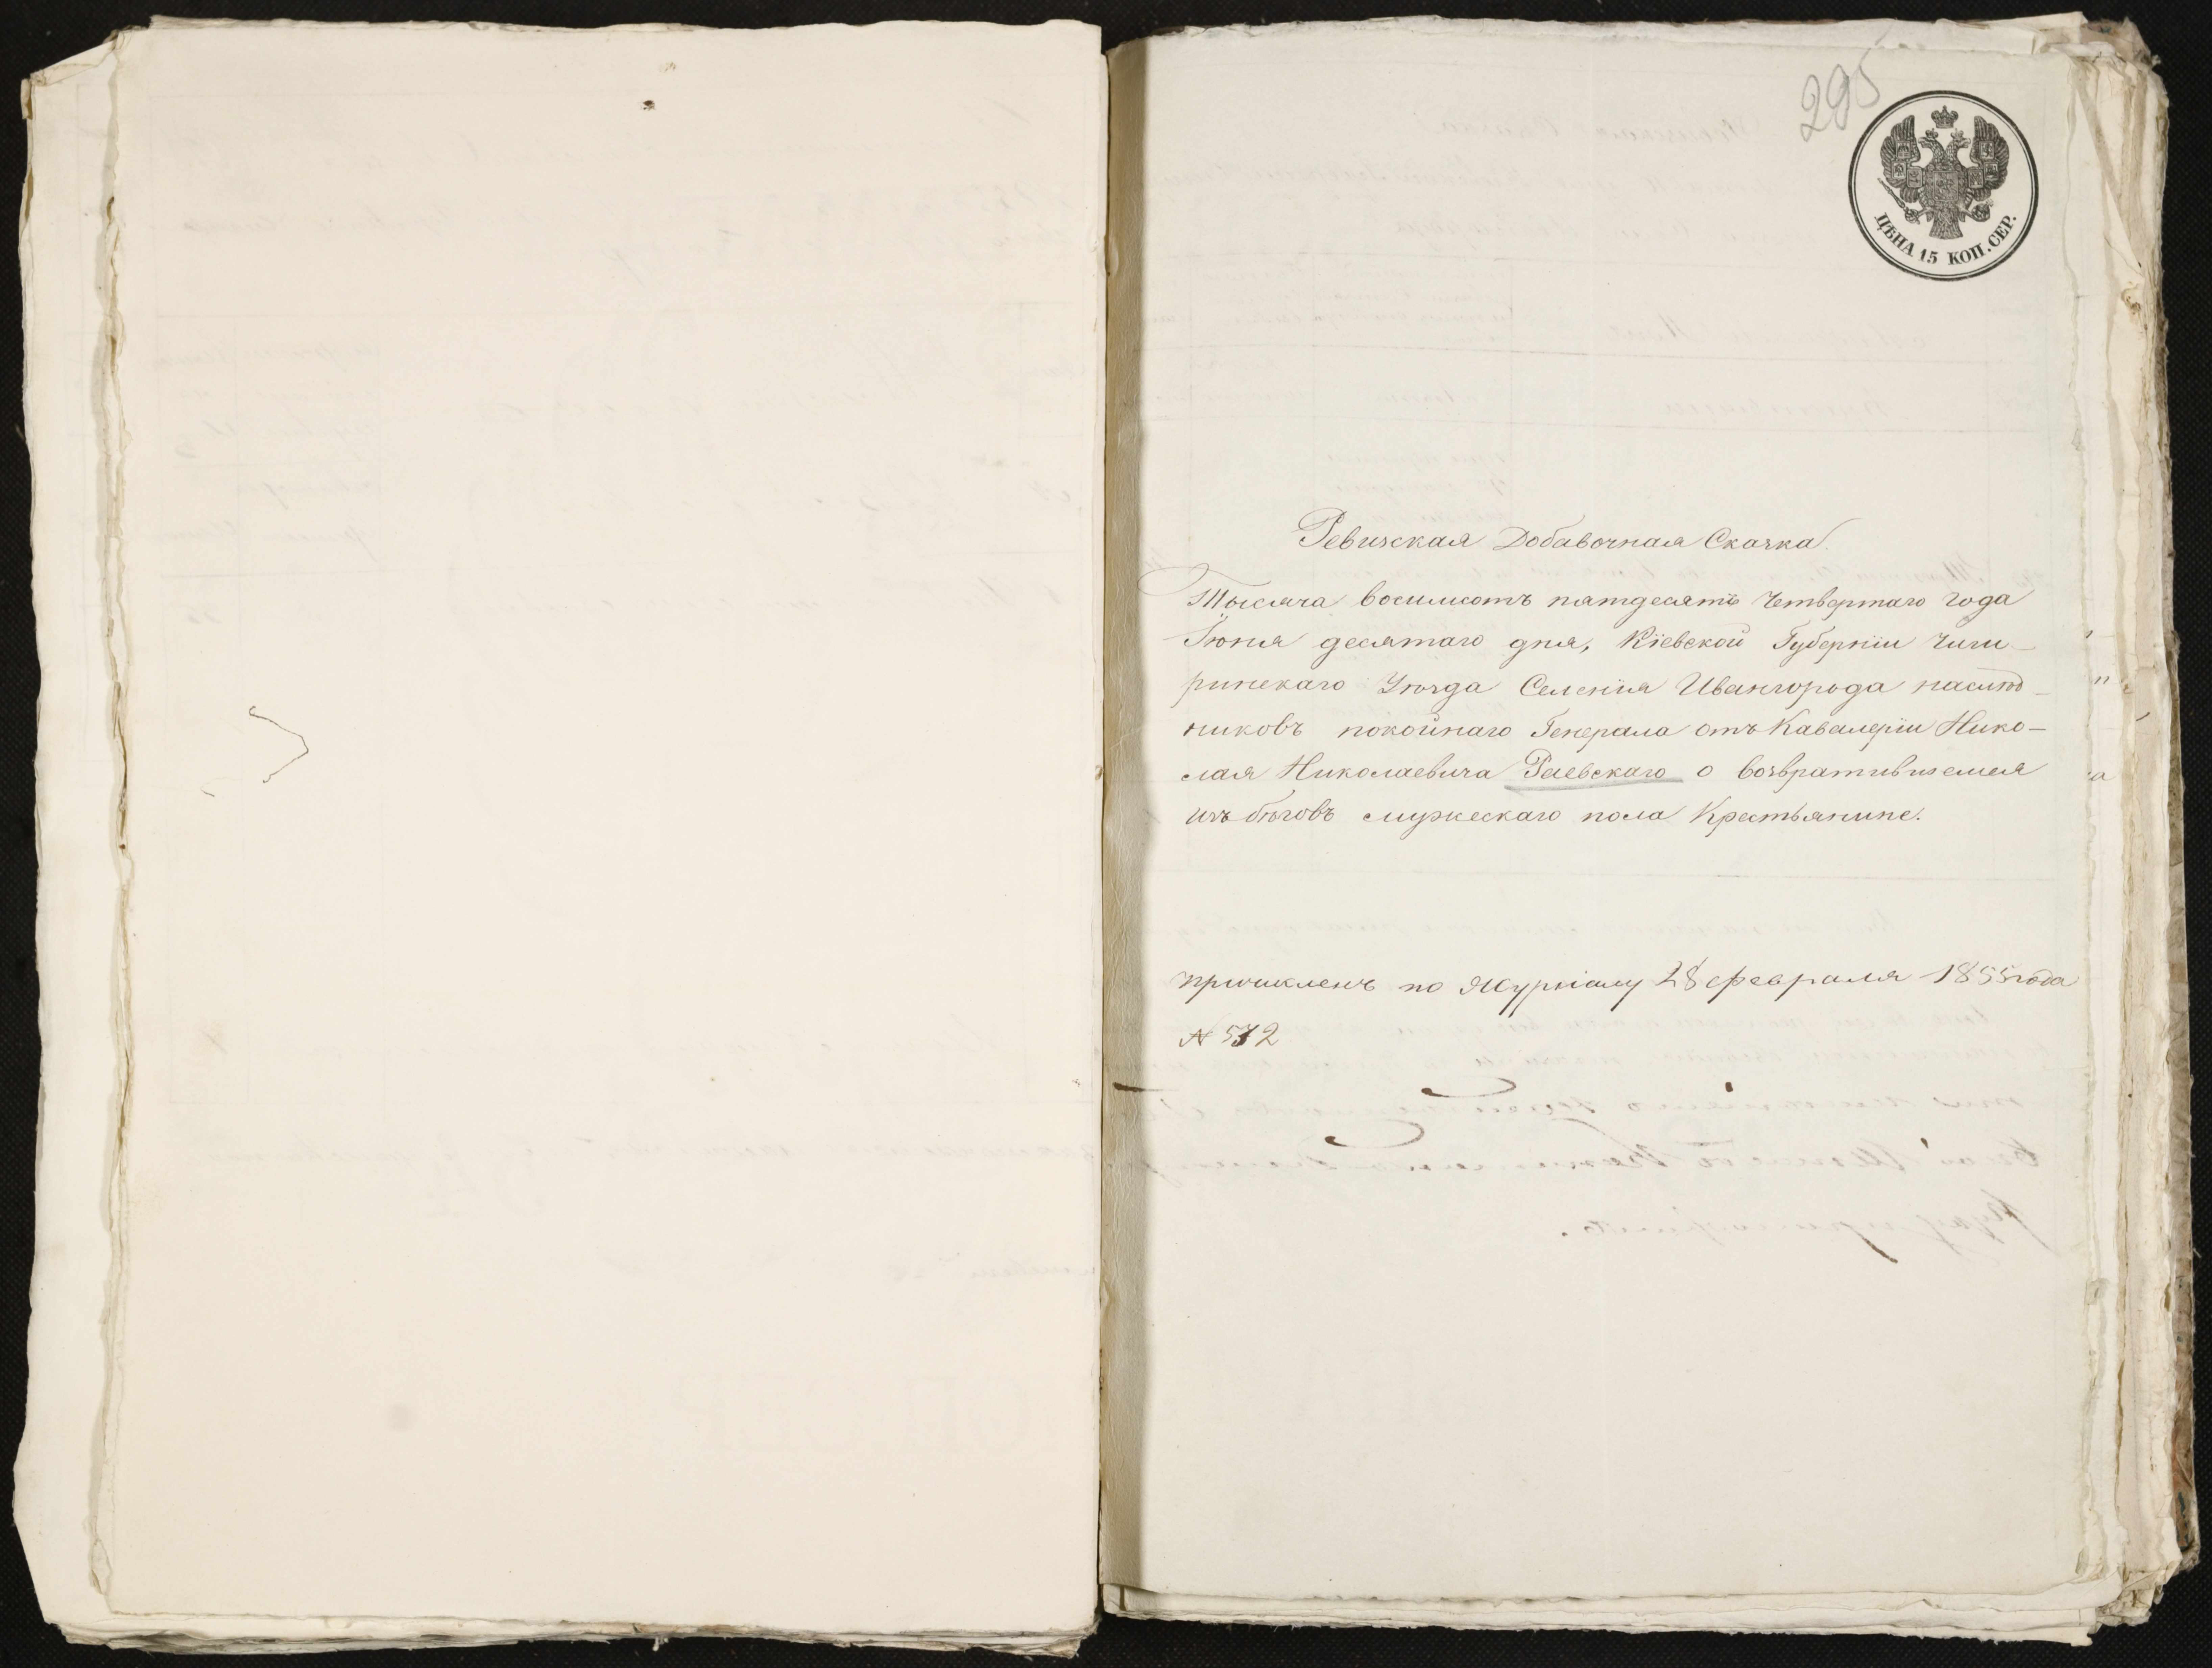 295
ЦѢНА 15 КОП. СЕР.
Ревизская Добавочная Сказка.
Тысяча восемьсотъ пятдесятъ Четвертаго года
Іюня десятаго дня, Кіевской Губерніи Чиги-
ринскаго Уѣзда Селенія Ивангорода наслѣд-
никовъ покойнаго Генерала отъ Кавалеріи Нико-
лая Николаевича Раевскаго о возвратившемся
изъ бѣговъ мужескаго пола Крестьянине.
причисленъ по Журналу 28 февраля 1855 года
№